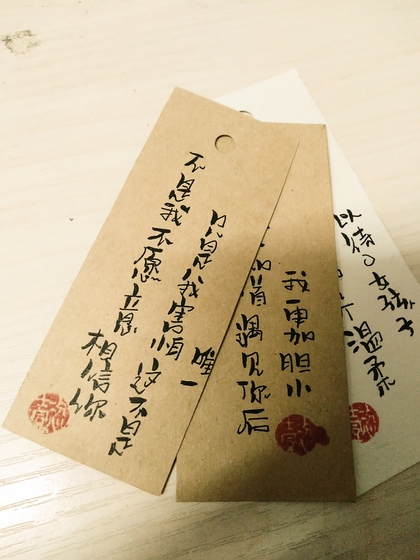 不是我不愿立相信你
只是我害怕这不是
唯一
首遇见你后
我更加胆小
温柔
以待女孩子